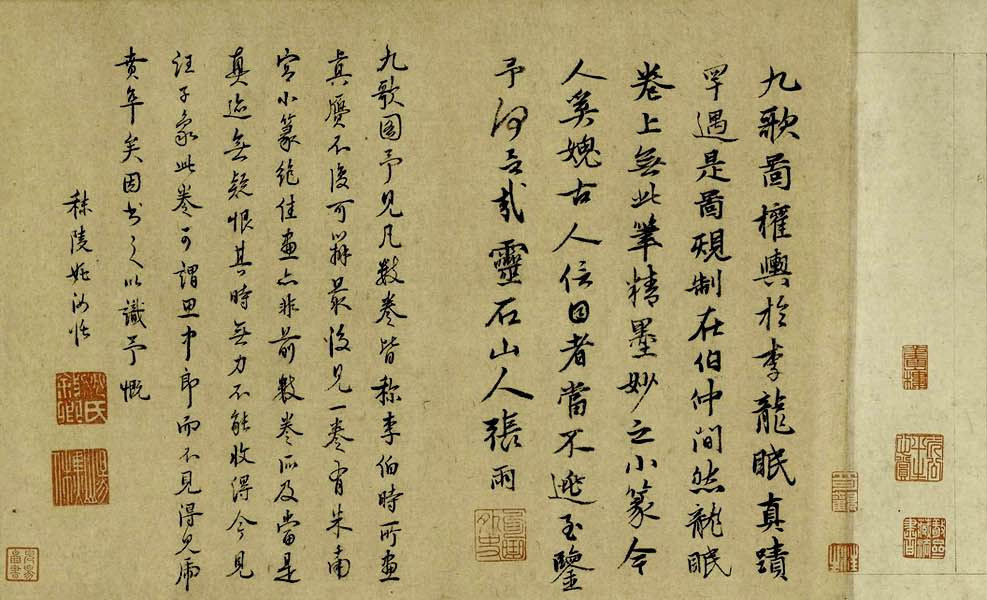 九歌圖權輿於李龍眠真蹟
罕遇是圖規制在伯仲間然龍眠
卷上無此筆精墨妙之小篆令
人奚媿古人信目者當不逃至鑒
予何言哉靈石山人張雨
九歌圖予見凡數卷皆称李伯時所畫
真贗不復可辯最後見一卷有朱南
宮小篆絶佳畫亦非前數卷所及當是
真迹無疑恨其時無力不能收得今見
汪子象此卷可謂思中郎而不見得見虎
賁年矣因書之以識予慨
秣陵姚